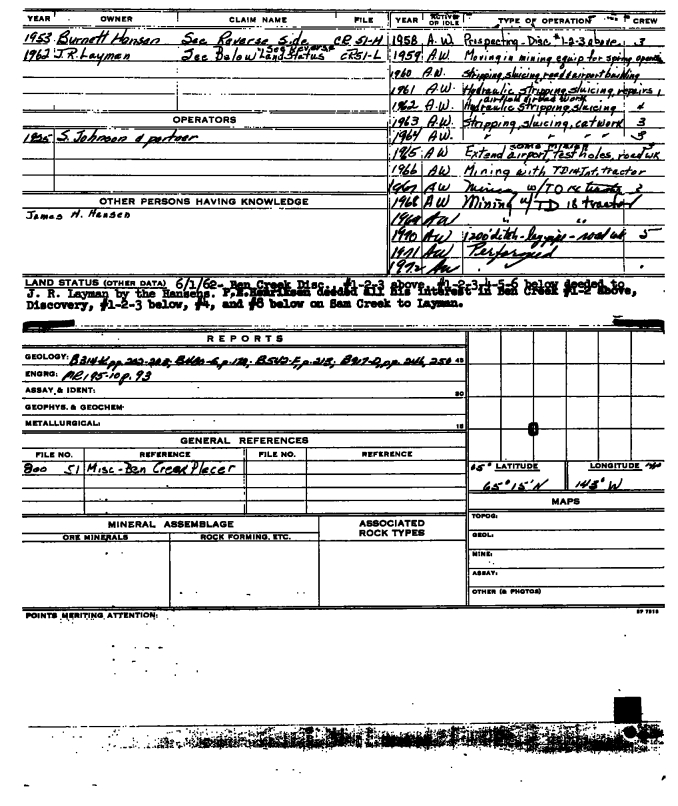 YEAR OWNER CLAIM NAME FILE
1953 Burnett Hansen See Reverse Side CR 51-H
1962 J.R. Layman See Below "See Reverse Land Status CR51-L
OPERATORS
1935 S. Johnson & partner
OTHER PERSONS HAVING KNOWLEDGE
James H. Hansen
YEAR ACTIVE OR IDLE TYPE OF OPERATION CREW
1958 A.W. Prospecting - Disc. #1-2-3 above. 3
1959 A.W. Moving in mining equip for spring
1960 A.W. Stripping, sluicing, road & airport building
1961 A.W. Hydraulic stripping, sluicing, repairs
airfield & road work
1962 A.W. Hydraulic Stripping, sluicing 4
1963 A.W. Stripping, sluicing, catwork 3
1964 A.W. " " " 3
some mining
1965 AW Extend airport, test holes, road wk
1966 AW Mining with TD 14 Int. tractor
1967 AW Mining w/TD 2
1968 AW Mining w/ TD 18 tractor
1969 AW " "
1970 AW 1200' ditch - - road wk 5
1971 AW Performed
1972 AW "
LAND STATUS (OTHER DATA) 6/1/62- Ben Creek Disc., #1-2-3 above, below deeded to
J. R. Layman by the Hansens. deeded all his interest in Ben Creek #1-2 above,
Discovery, #1-2-3 below, #4, and #8 below on Sam Creek to Layman.
REPORTS
GEOLOGY: pp. 202-203; p. 215; pp. 246, 250 45
ENGRG: MR 195-10 p. 93
ASSAY & IDENT: 30
GEOPHYS. & GEOCHEM-
METALLURGICAL: 15
GENERAL REFERENCES
FILE NO. REFERENCE FILE NO. REFERENCE
800 51 Misc - Ben Creek Placer
65° LATITUDE LONGITUDE
65° 15' N 143° W
MAPS
TOPOG:
GEOL:
MINE:
ASSAY:
OTHER (& PHOTOS)
MINERAL ASSEMBLAGE ASSOCIATED ROCK TYPES
ORE MINERALS ROCK FORMING, ETC.
POINTS MERITING ATTENTION: